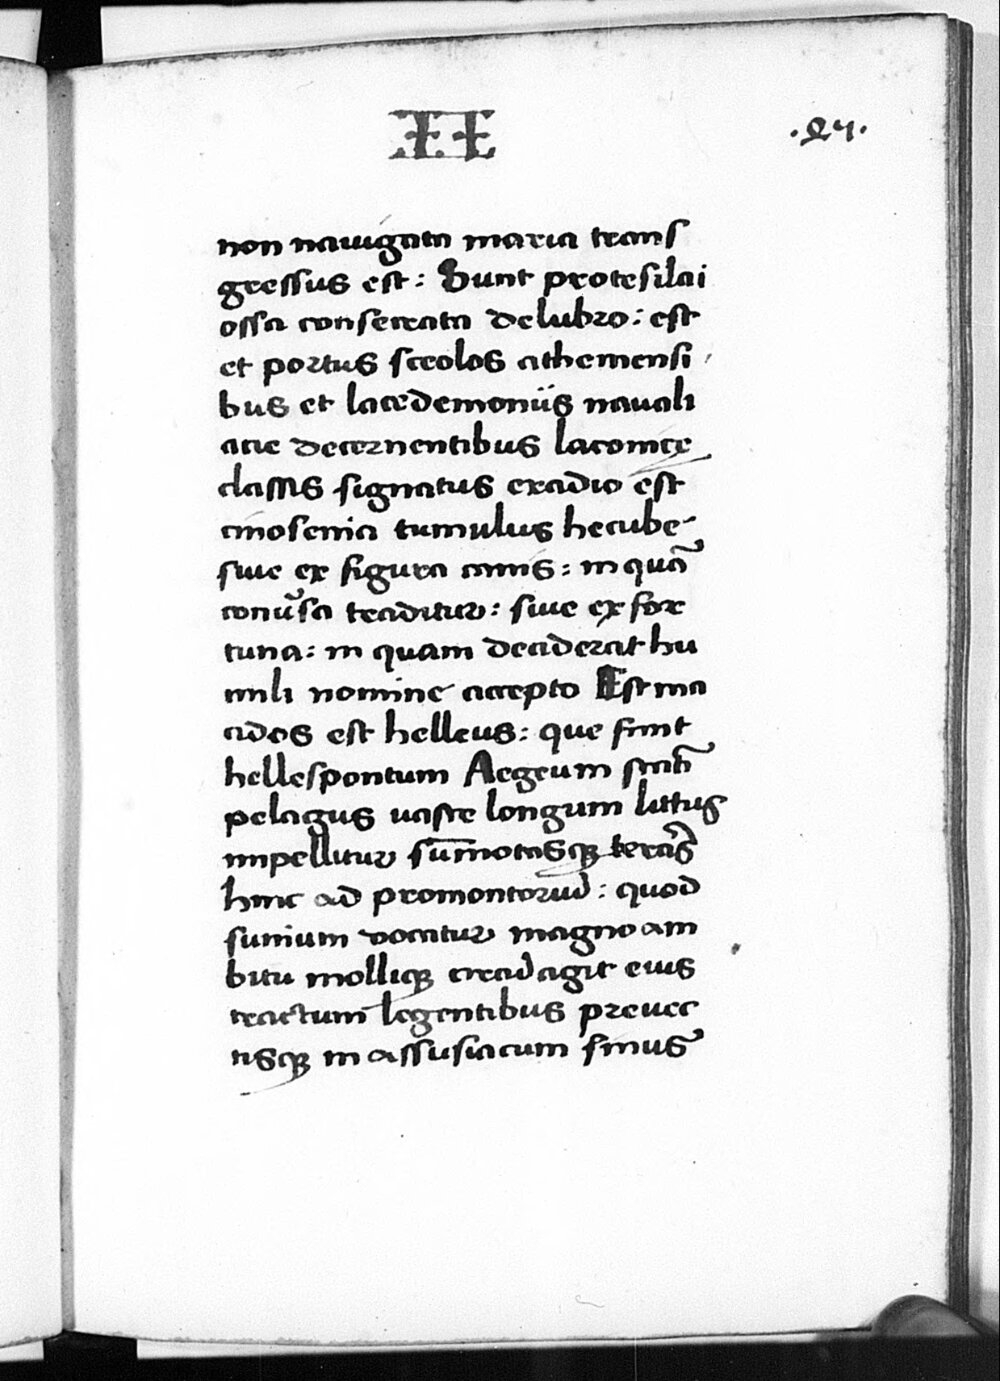 II
.24.
non nauigata maria trans
gressus est: Sunt protesilai
ossa consecrata delubro: est
et portus sceolos atheniensi
bus et lacedemoniis nauali
acie decernentibus laconice
classis signatus excidio est
cinosema tumulus hecube
siue ex figura canis: in quã
conu̾sa traditur: siue ex for
tuna: in quam deciderat hu
mili nomine accepto Est ma
cidos est helleus: que finit
hellespontum Aegeum statĩ
pelagus uaste longum littus
impellitur sũmotasq terr̃as
hinc ad promontoriũ: quod
sunium uocatur magno am
bitu molliq circũagit eius
tractum legentibus preuec
tisq in assusiacum sinus